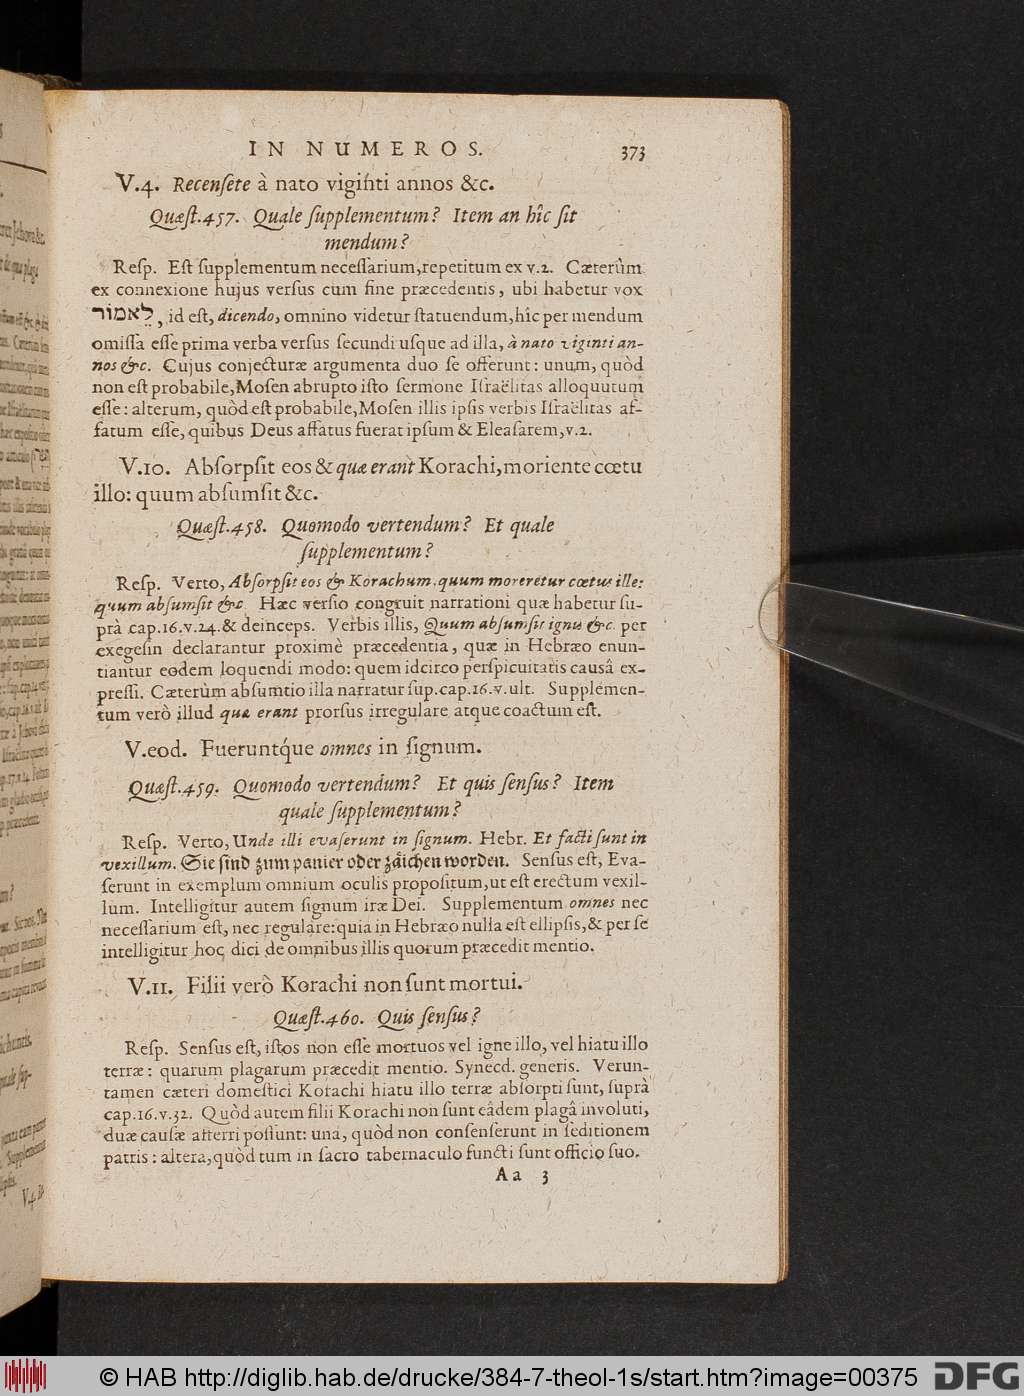 IN NUMEROS. 373
V.4. Recenſete à nato viginti annos &c.
Quæſt.457. Quale ſupplementum? Item an hîc ſit
mendum?
Reſp. Eſt ſupplementum neceſſarium,repetitum ex v.2. Cæterùm
ex connexione hujus verſus cum fine præcedentis, ubi habetur vox
לֵאמוֹר, id eſt, dicendo, omnino videtur ſtatuendum,hîc per mendum
omiſſa eſſe prima verba verſus ſecundi uſque ad illa, à nato viginti an-
nos &c. Cujus conjecturæ argumenta duo ſe offerunt: unum, quòd
non eſt probabile,Moſen abrupto iſto ſermone Iſraëlitas alloquutum
eſſe: alterum, quòd eſt probabile,Moſen illis ipſis verbis Iſraëlitas af-
fatum eſſe, quibus Deus affatus fuerat ipſum & Eleaſarem,v.2.
V.10. Abſorpſit eos & quæ erant Korachi,moriente cœtu
illo: quum abſumſit &c.
Quæſt.458. Quomodo vertendum? Et quale
ſupplementum?
Reſp. Verto, Abſorpſit eos & Korachum, quum moreretur cœtus ille:
quum abſumſit &c. Hæc verſio congruit narrationi quæ habetur ſu-
prà cap.16.v.24.& deinceps. Verbis illis, Quum abſumſit ignis &c. per
exegeſin declarantur proximè præcedentia, quæ in Hebræo enun-
tiantur eodem loquendi modo: quem idcirco perſpicuitatis causâ ex-
preſſi. Cæterùm abſumtio illa narratur ſup.cap.16.v.ult. Supplemen-
tum verò illud quæ erant prorſus irregulare atque coactum eſt.
V.eod. Fueruntq́ue omnes in ſignum.
Quæſt.459. Quomodo vertendum? Et quis ſenſus? Item
quale ſupplementum?
Reſp. Verto, Unde illi evaſerunt in ſignum. Hebr. Et facti ſunt in
vexillum. Sie ſind zum panier oder zäichen worden. Senſus eſt, Eva-
ſerunt in exemplum omnium oculis propoſitum,ut eſt erectum vexil-
lum. Intelligitur autem ſignum iræ Dei. Supplementum omnes nec
neceſſarium eſt, nec regulare:quia in Hebræo nulla eſt ellipſis,& per ſe
intelligitur hoc dici de omnibus illis quorum præcedit mentio.
V.11. Filii verò Korachi non ſunt mortui.
Quæſt.460. Quis ſenſus?
Reſp. Senſus eſt, iſtos non eſſe mortuos vel igne illo, vel hiatu illo
terræ: quarum plagarum præcedit mentio. Synecd. generis. Verun-
tamen cæteri domeſtici Korachi hiatu illo terræ abſorpti ſunt, ſuprà
cap.16.v.32. Quòd autem filii Korachi non ſunt eâdem plagâ involuti,
duæ cauſæ afferri poſſunt: una, quòd non conſenſerunt in ſeditionem
patris: altera,quòd tum in ſacro tabernaculo functi ſunt officio ſuo.
Aa 3
© HAB http://diglib.hab.de/drucke/384-7-theol-1s/start.htm?image=00375 DFG